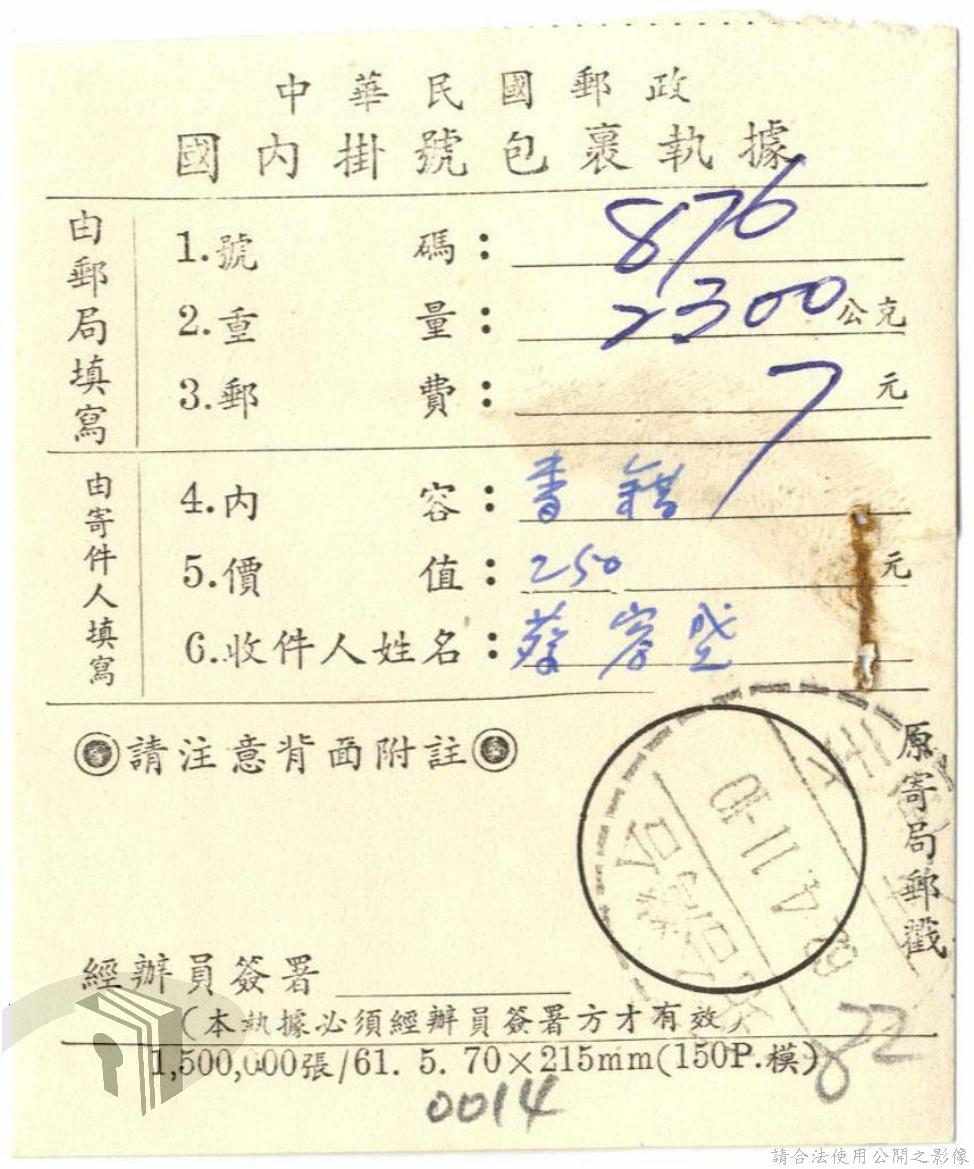 中華民國郵政
國內掛號包裹執據
由郵局填寫
1.號碼：876
2.重量：2300公克
3.郵費：7元
由寄件人填寫
4.內容：書籍
5.價值：250元
6.收件人姓名：蔡寬盛
◉請注意背面附註◉
原寄局郵戳
經辦員簽署
（本執據必須經辦員簽署方才有效）
1,500,000張/61. 5. 70×215mm(150P.模)
82
0014
請合法使用公開之影像